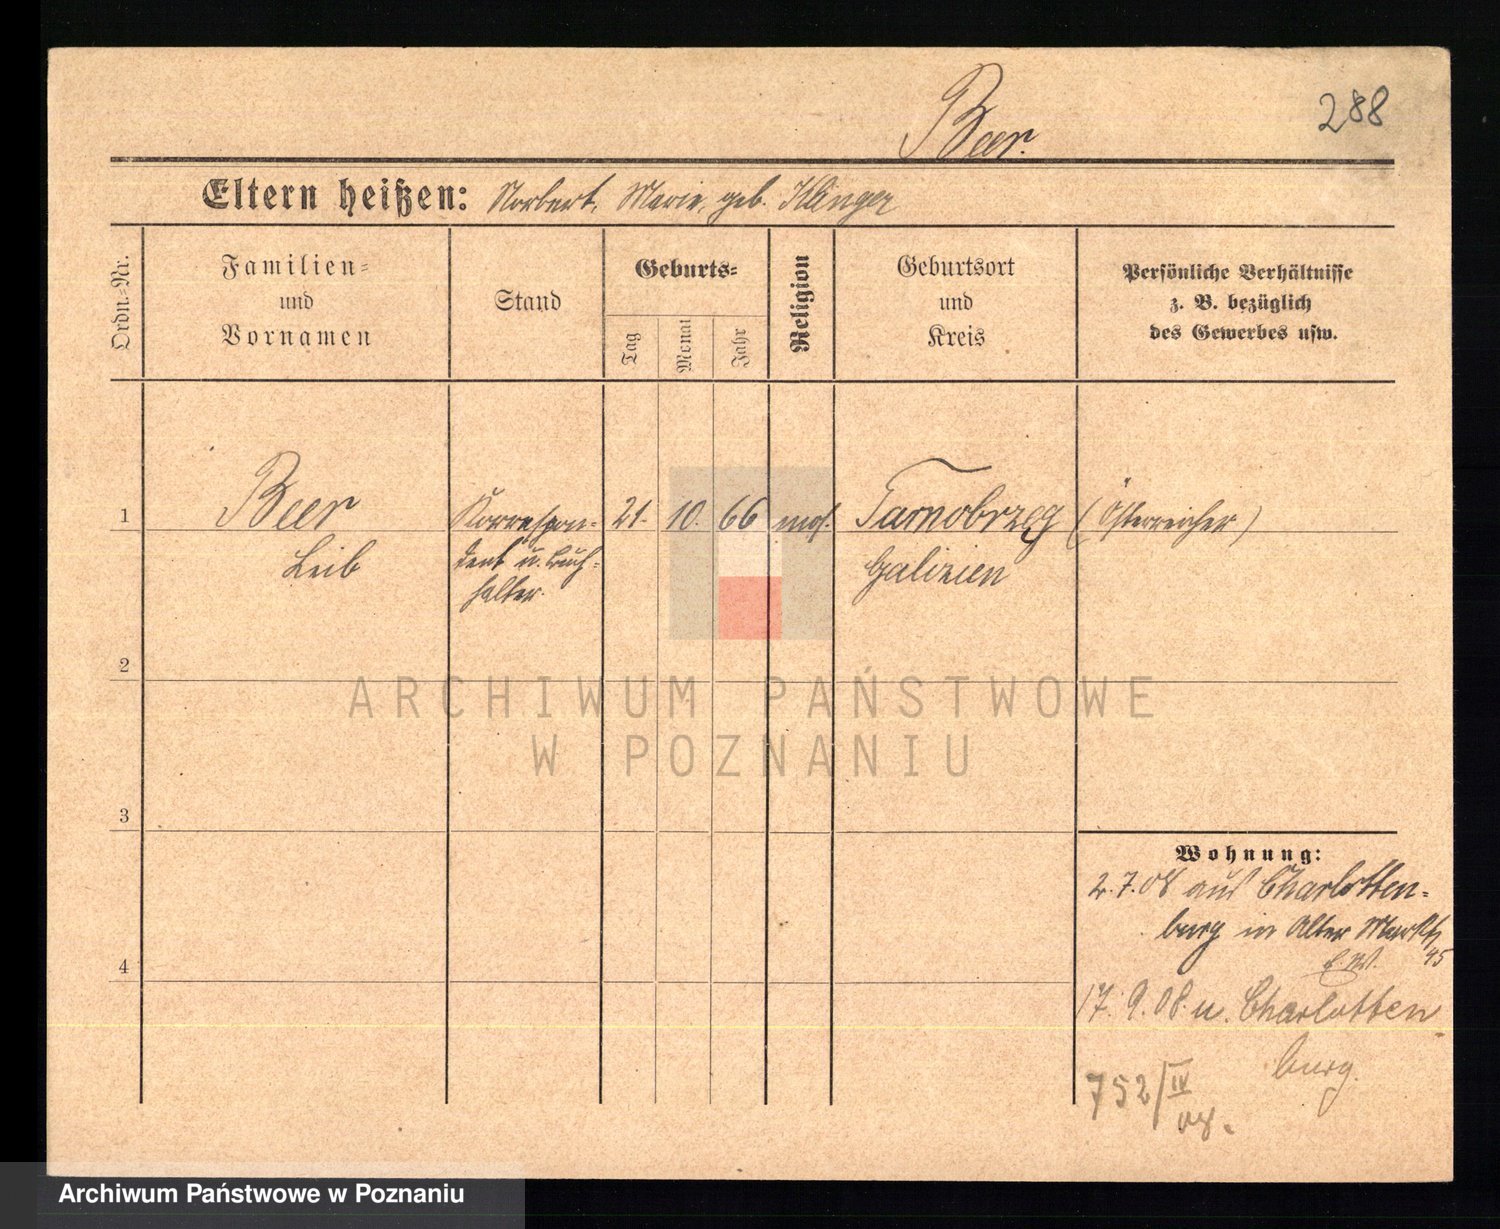 288
Beer.
Eltern heißen: Norbert, Marie, geb. Klinger
Ordn.-Nr.
Familien-
und
Vornamen
Stand
Geburts-
Tag
Monat
Jahr
Religion
Geburtsort
und
Kreis
Persönliche Verhältnisse
z. B. bezüglich
des Gewerbes usw.
1
Beer
Leib
Korrespon-
dent u. Buch-
halter.
21.
10.
66
mos.
Tarnobrzeg
Galizien
(Österreicher)
2
ARCHIWUM PAŃSTWOWE
W POZNANIU
3
4
Wohnung:
2.7.08 aus Charlotten-
burg in Alter Markt
45
17.9.08. n. Charlotten
burg.
752/IV
08.
Archiwum Państwowe w Poznaniu